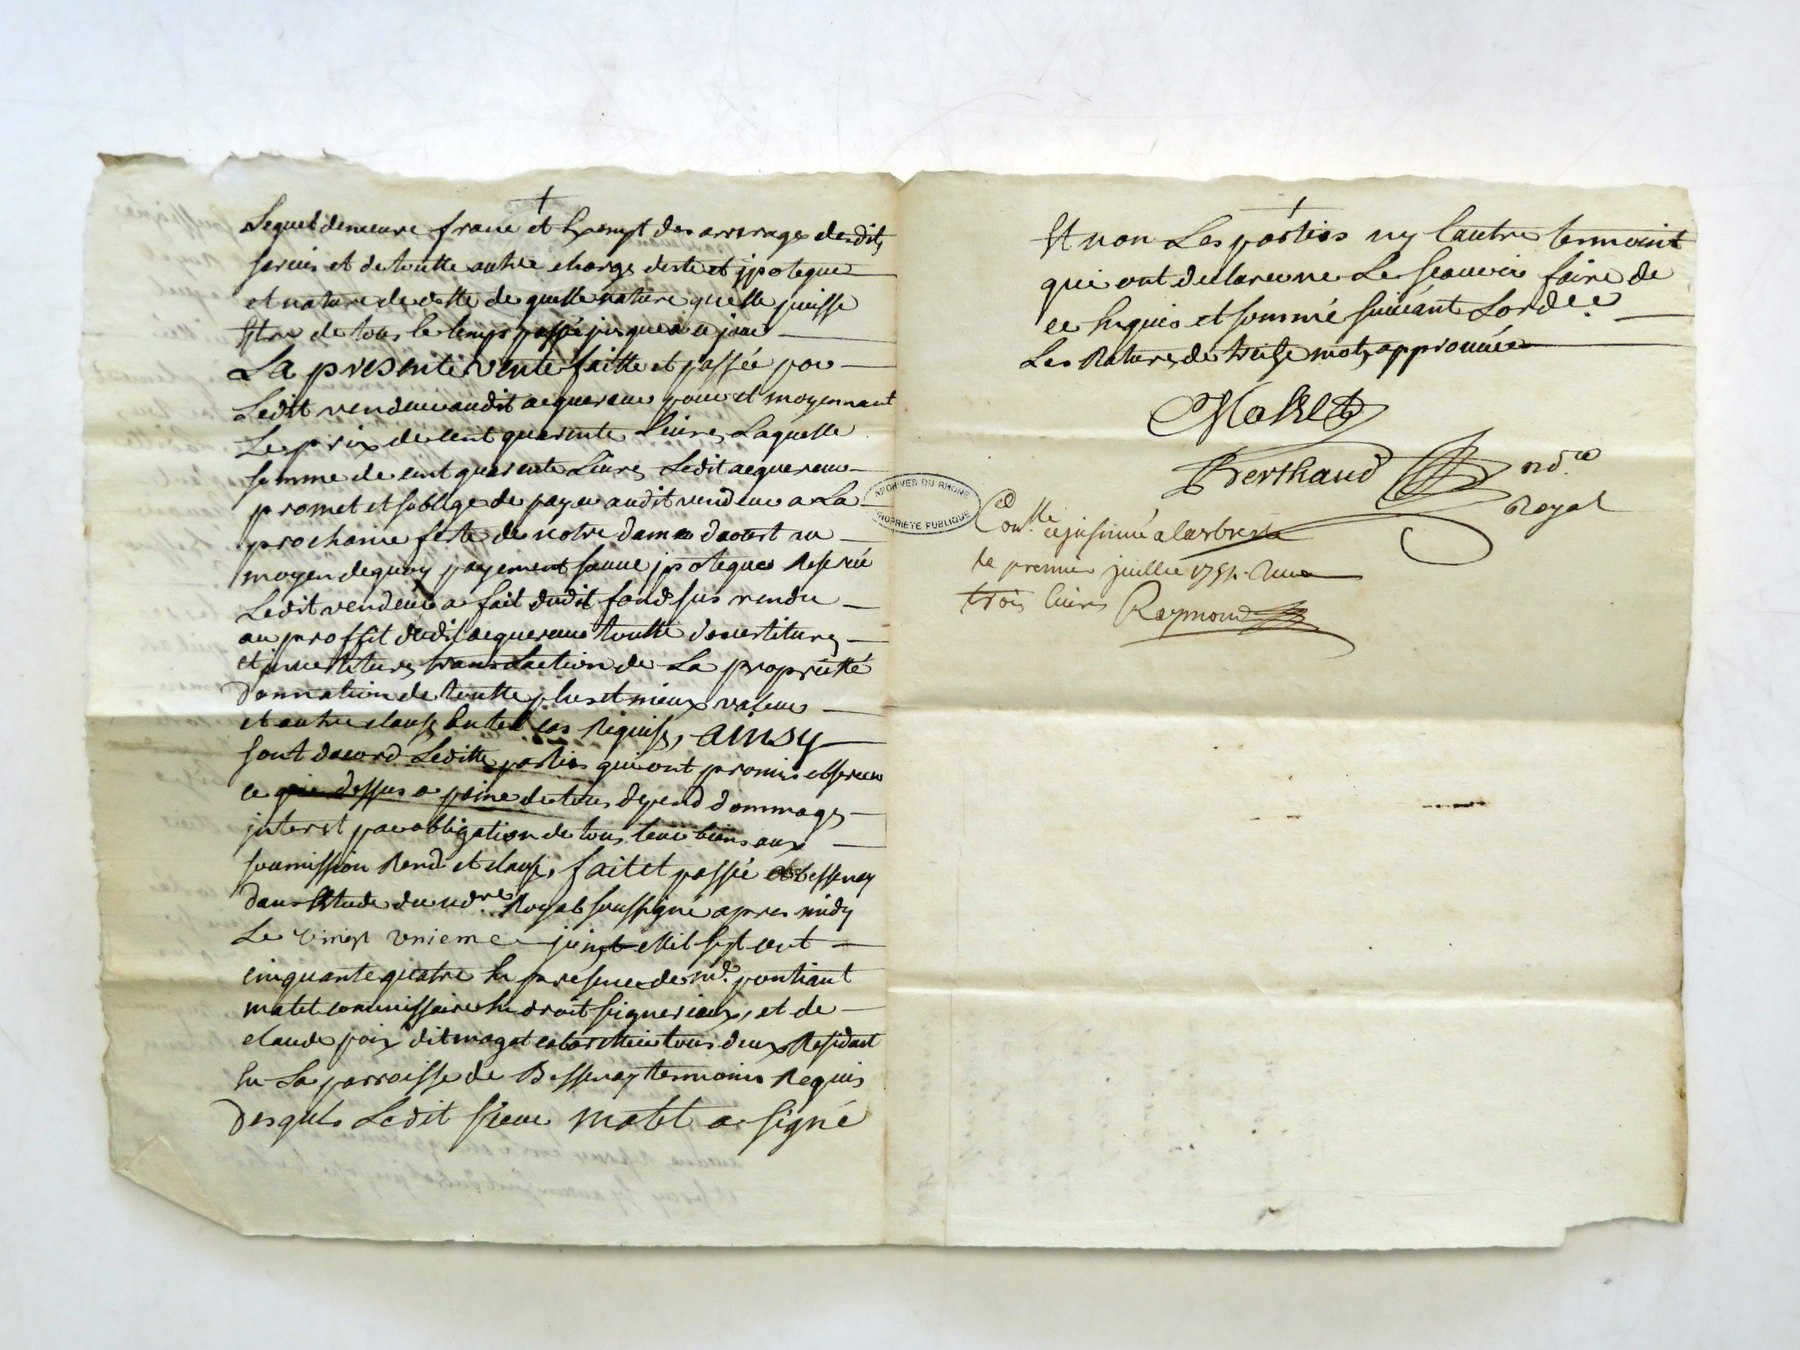 Lequel demeure franc et Exempt des arrerages desdits
servis et de toutte autre charge deste et jpoteque
et nature de dette de quelle nature quelle puisse
Etre de tous le temps passé jusques a ce jour
La presente vente faitte et passée par
Ledit vendeur audit acquereur pour et moyennant
Le prix de Cent quarente Livres Laquelle
somme de cent quarente Livres Ledit acquereur
promet et soblige de payer audit vendeur a La
prochaine feste de notre dame daoust au
moyen de quoy payement sauve jpoteques Reservé
Ledit vendeur a fait dudit fond sus vendu
au proffit dudit acquereur toutte devestitures
et investitures translaction de La proprietté
Donnation de toutte plus et mieux valeur
et autre clauses En tel cas Requises, ainsy
sont dacord Leditte parties qui ont promis observer
ce que dessus a peine de tous depend dommages
jnterest par obligation de tous leur biens aux
soumission Rend et clauses, fait et passé a bessenay
Dans Etude du ndre Royal soussigné apres midy
Le vingt unieme juin Mil sept cent
cinquante quatre En presence de md. pontiant
matet commissaire En droit signeriaux, et de
claude poix dit maget tous deux Residant
En La parroisse de Bessenay temoins Requis
Desquels Ledit sieur matet a signé
Et non Les parties ny Lautre temoint
qui ont declaré ne Le scavoir faire de
ce Enquis et sommé suivant Lordce
Les Ratures de treize mots approuvée
Matet
Berthaud ndre
Royal
ARCHIVES DU RHONE
PROPRIETE PUBLIQUE
Conlle et insinué a larbresle
le premier juillet 1754. Receu
trois livres Raymond